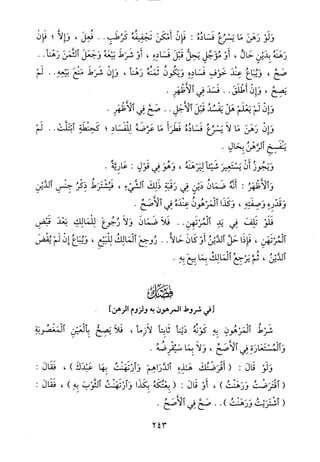 وَلَوْ رَهَنَ مَا يَسْرُعُ فَسَادُهُ : فَإِنْ أَمْكَنَ تَجْفِيفُهُ كَرُطَبٍ.. فُعِلَ ، وَإِلَّا ؛ فَإِنْ
رَهَنَهُ بِدَيْنٍ حَالٍّ ، أَوْ مُؤَجَّلٍ يَحِلُّ قَبْلَ فَسَادِهِ ، أَوْ شَرَطَ بَيْعَهُ وَجَعْلَ ٱلثَّمَنِ رَهْناً..
صَحَّ ، وَيُبَاعُ عِنْدَ خَوْفِ فَسَادِهِ وَيَكُونُ ثَمَنُهُ رَهْناً ، وَإِنْ شَرَطَ مَنْعَ بَيْعِهِ.. لَمْ
يَصِحَّ ، وَإِنْ أَطْلَقَ.. فَسَدَ فِي ٱلْأَظْهَرِ .
وَإِنْ لَمْ يَعْلَمْ هَلْ يَفْسُدُ قَبْلَ ٱلْأَجَلِ.. صَحَّ فِي ٱلْأَظْهَرِ .
وَإِنْ رَهَنَ مَا لَا يَسْرُعُ فَسَادُهُ فَطَرَأَ مَا عَرَّضَهُ لِلْفَسَادِ ؛ كَحِنْطَةٍ ٱبْتَلَّتْ.. لَمْ
يَنْفَسِخِ ٱلرَّهْنُ بِحَالٍ .
وَيَجُوزُ أَنْ يَسْتَعِيرَ شَيْئاً لِيَرْهَنَهُ ، وَهُوَ فِي قَوْلٍ : عَارِيَّةٌ .
وَٱلْأَظْهَرُ : أَنَّهُ ضَمَانُ دَيْنٍ فِي رَقَبَةِ ذَلِكَ ٱلشَّيْءِ ، فَيُشْتَرَطُ ذِكْرُ جِنْسِ ٱلدَّيْنِ
وَقَدْرِهِ وَصِفَتِهِ ، وَكَذَا ٱلْمَرْهُونُ عِنْدَهُ فِي ٱلْأَصَحِّ .
فَلَوْ تَلِفَ فِي يَدِ ٱلْمُرْتَهِنِ.. فَلَا ضَمَانَ وَلَا رُجُوعَ لِلْمَالِكِ بَعْدَ قَبْضِ
ٱلْمُرْتَهِنِ ، فَإِذَا حَلَّ ٱلدَّيْنُ أَوْ كَانَ حَالّاً.. رُوجِعَ ٱلْمَالِكُ لِلْبَيْعِ ، وَيُبَاعُ إِنْ لَمْ يُقْضَ
ٱلدَّيْنُ ، ثُمَّ يَرْجِعُ ٱلْمَالِكُ بِمَا بِيعَ بِهِ .
فَصْلٌ
[في شروط المرهون به ولزوم الرهن]
شَرْطُ ٱلْمَرْهُونِ بِهِ كَوْنُهُ دَيْناً ثَابِتاً لَازِماً ، فَلَا يَصِحُّ بِٱلْعَيْنِ ٱلْمَغْصُوبَةِ
وَٱلْمُسْتَعَارَةِ فِي ٱلْأَصَحِّ ، وَلَا بِمَا سَيُقْرِضُهُ .
وَلَوْ قَالَ : ( أَقْرَضْتُكَ هَذِهِ ٱلدَّرَاهِمَ وَٱرْتَهَنْتُ بِهَا عَبْدَكَ ) ، فَقَالَ :
( ٱقْتَرَضْتُ وَرَهَنْتُ ) ، أَوْ قَالَ : ( بِعْتُكَهُ بِكَذَا وَٱرْتَهَنْتُ ٱلثَّوْبَ بِهِ ) ، فَقَالَ :
( ٱشْتَرَيْتُ وَرَهَنْتُ ).. صَحَّ فِي ٱلْأَصَحِّ .
٢٤٣